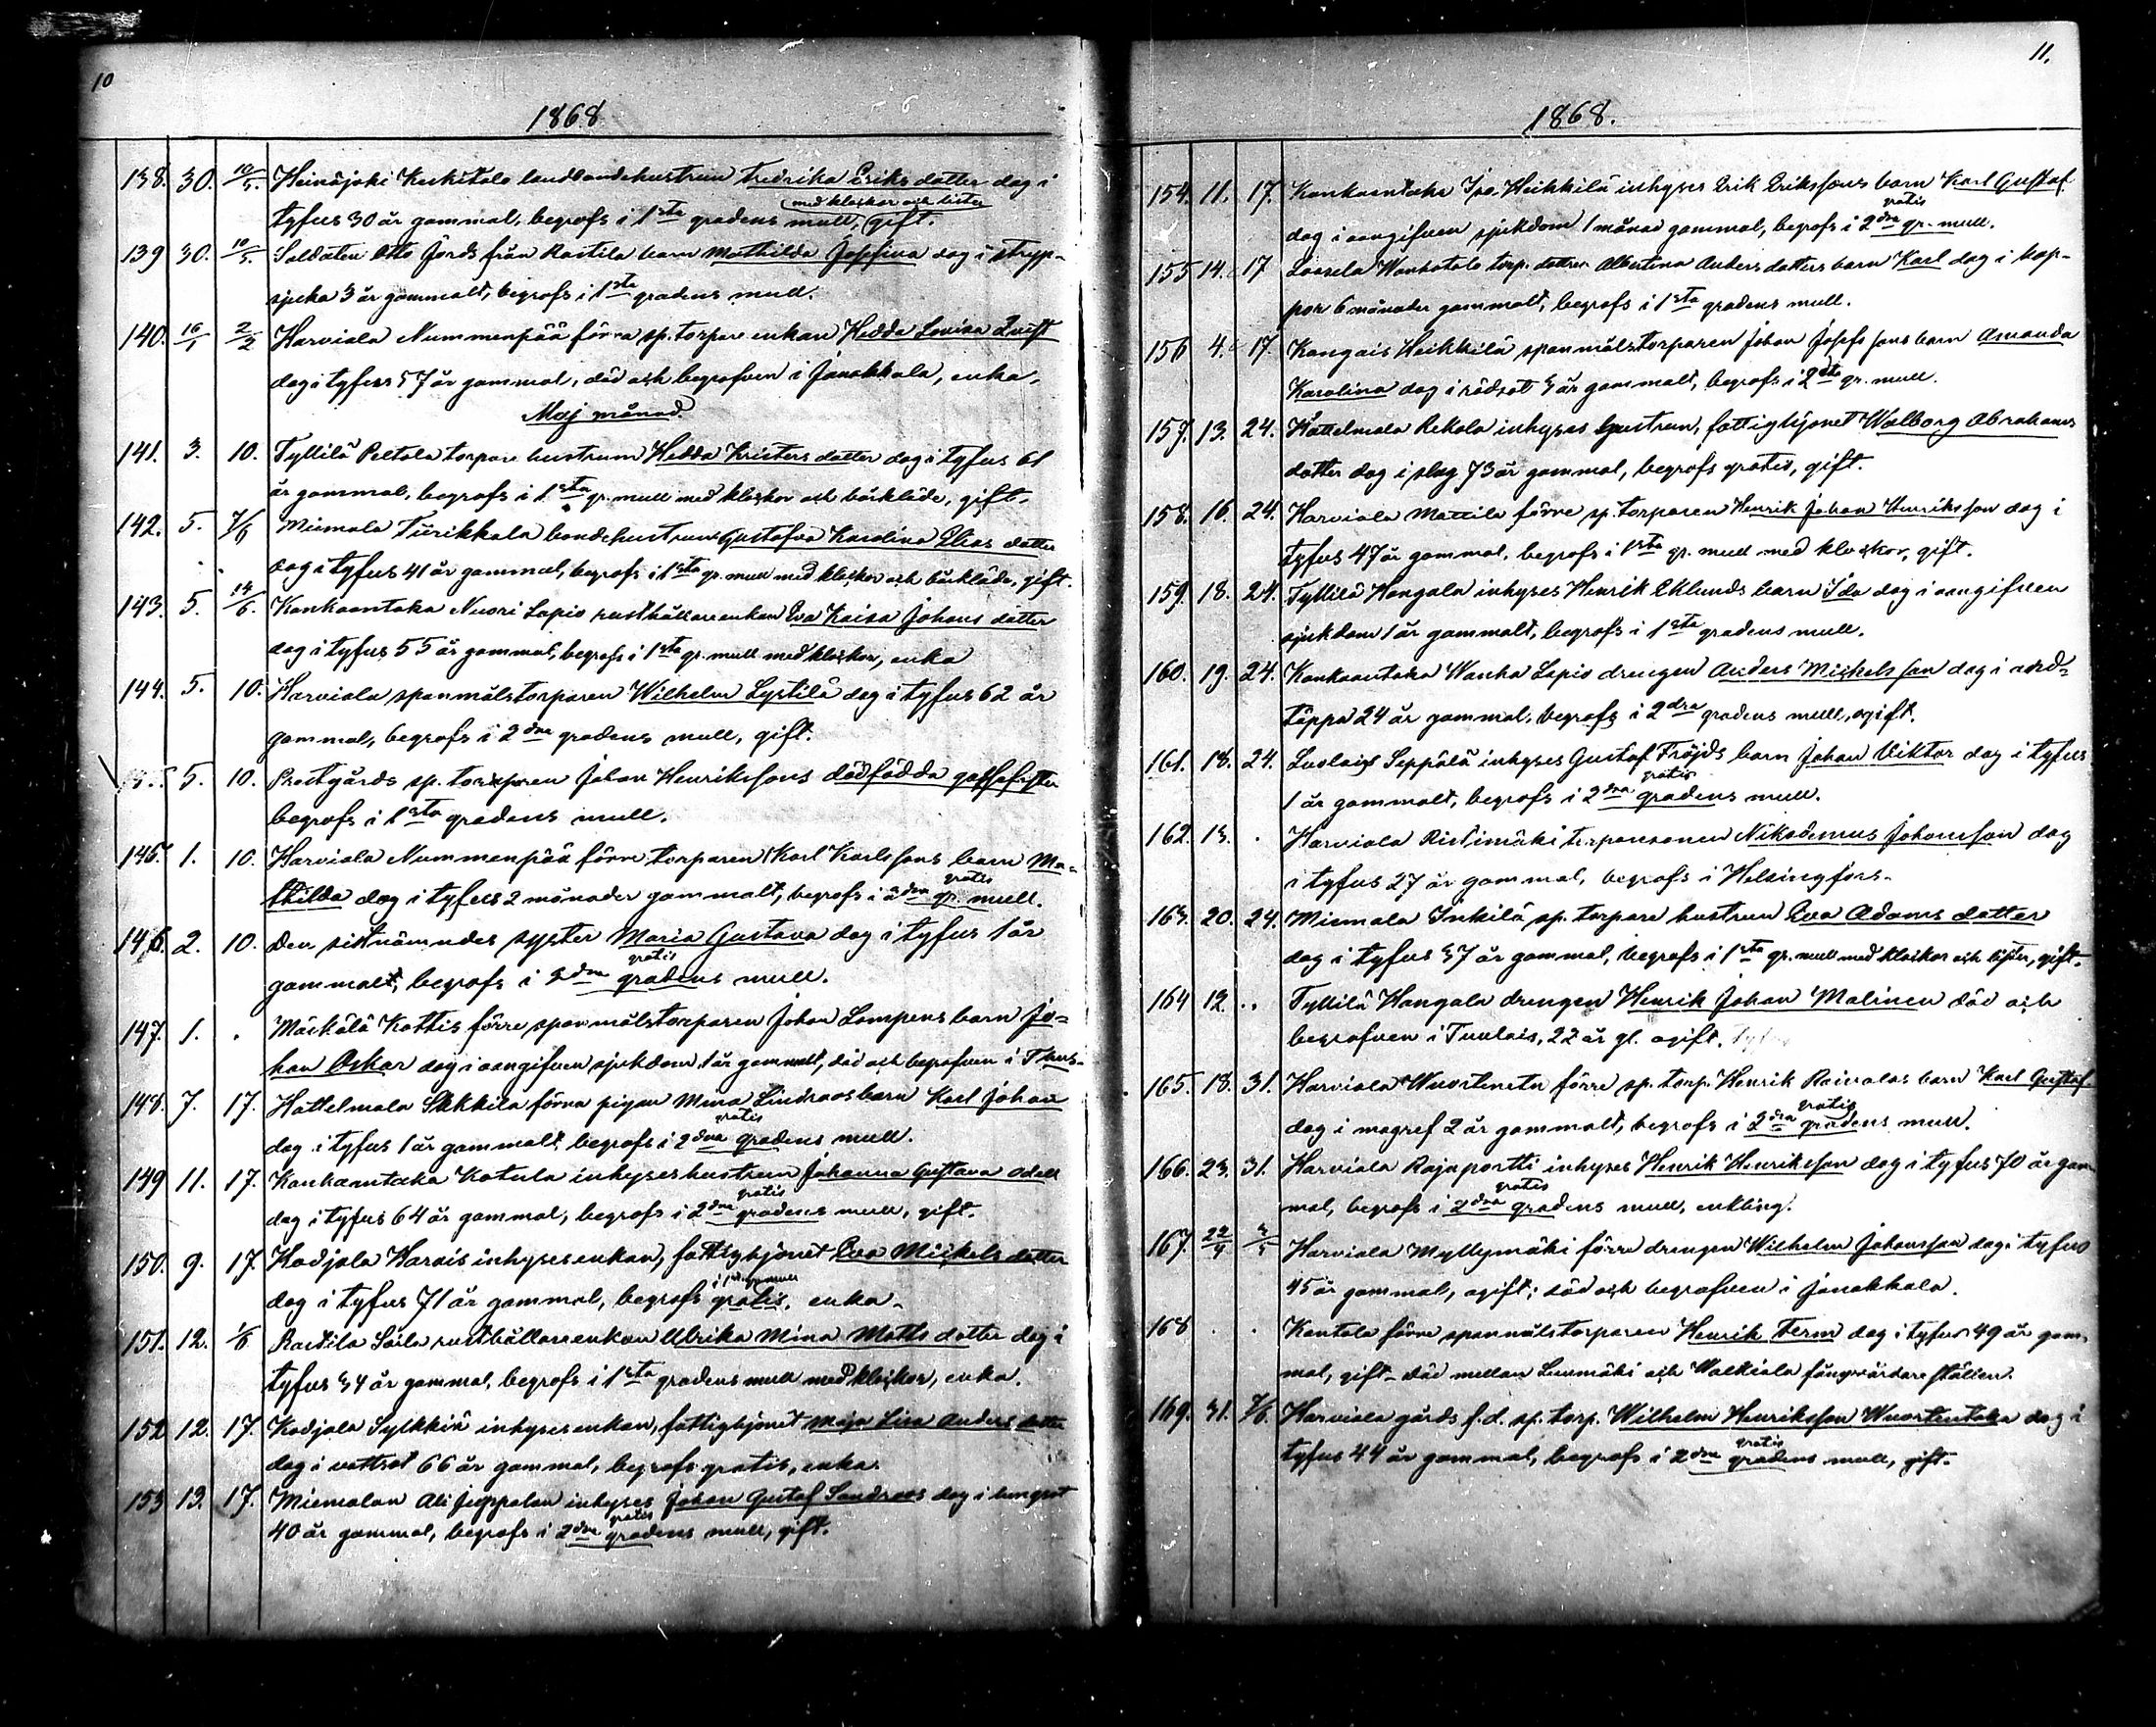 10
1868
138. 30. 10/5. Heinäjoki Keskitalo landbondehustrun Fredrika Eriks dotter dog i
tyfus 30 år gammal, begrofs i 1sta gradens mull, med klockor och lister gift.
139 30. 10/5. Soldaten Otto Jords från Rastila barn Mathilda Josefina dog i stryp-
sjuka 3 år gammalt, begrofs i 1sta gradens mull.
140. 16/1 2/2 Harviala Nummenpää förra sp. torpare enkan Hedda Lovisa Qvist
dog i tyfus 57 år gammal, död och begrafven i Janakkala, enka.
Maj månad.
141. 3. 10. Tyllilä Peltola torpare hustrun Hedda Kristers dotter dog i tyfus 61
år gammal, begrofs i 1sta gr. mull med klockor och bårkläde, gift.
142. 5. 7/6 Miemala Tiirikkala bondehustrun Gustafva Karolina Elias dotter
dog i tyfus 41 år gammal, begrofs i 1sta gr. mull med klockor och bårkläde, gift.
143. 5. 14/6. Kankaantaka Nuori Lapio rusthållareenkan Eva Kaisa Johans dotter
dog i tyfus 55 år gammal, begrofs i 1sta gr. mull med klockor, enka
144. 5. 10. Harviala spanmålstorparen Wilhelm Lystilä dog i tyfus 62 år
gammal, begrofs i 2dra gradens mull, gift.
5. 10. Prestgårds sp. torparen Johan Henrikssons dödfödda gossefoster
begrofs i 1sta gradens mull.
145. 1. 10. Harviala Nummenpää förre torparen Karl Karlssons barn Ma-
thilda dog i tyfus 2 månader gammalt, begrofs i 2dra gratis gr. mull.
146. 2. 10. Den sistnämndes syster Maria Gustava dog i tyfus 1 år
gammalt, begrofs i 2dra gratis gradens mull.
147. 1. . Mäskälä Kottis förre spanmålstorparen Johan Lampens barn Jo-
han Oskar dog i oangifven sjukdom 1 år gammalt, död och begrafven i Thus-
148. 7. 17. Hattelmala förra pigan Mina Lindroos barn Karl Johan
dog i tyfus 1 år gammalt, begrofs i 2dra gratis gradens mull.
149 11. 17. Kankaantaka Katula inhyseshustrun Johanna Gustava Odell
dog i tyfus 64 år gammal, begrofs i 2dra gratis gradens mull, gift.
150. 9. 17. Kadjala Harois inhysesenkan, fattighjonet Eva Mickels dotter
dog i tyfus 71 år gammal, begrofs gratis, enka.
151. 12. 1/6 Rastila Soila rusthållareenkan Ulrika Mina Matts dotter dog i
tyfus 54 år gammal, begrofs i 1sta gradens mull med klockor, enka.
152 12. 17. Kadjala Sylkkiä inhysesenkan, fattighjonet Maja Lisa Anders dotter
dog i vattsot 66 år gammal, begrofs gratis, enka.
153 13. 17. Miemalan Ali Juppolan inhyses Johan Gustaf Sandroos dog i lungsot
40 år gammal, begrofs i 2dra gratis gradens mull, gift.
11.
1868.
154. 11. 17. Kankaantaka Iso Heikkilä inhyses Erik Erikssons barn Karl Gustaf
dog i oangifven sjukdom 1 månad gammal, begrofs i 2dra gratis gr. mull.
155 14. 17 Loosela Wanhatalo torp. dottren Albertina Anders dotters barn Karl dog i kop-
por 6 månader gammalt, begrofs i 1sta gradens mull.
156 4. 17. Kangais Heikkilä spanmålstorparen Johan Josefssons barn Amanda
Karolina dog i rödsot 5 år gammalt, begrofs i gr. mull.
157. 13. 24. Hattelmala Rekola inhyses hustrun, fattighjonet Walborg Abrahams
dotter dog i slag 73 år gammal, begrofs gratis, gift.
158. 16. 24. Harviala Mattila förre sp. torparen Henrik Johan Henriksson dog i
tyfus 47 år gammal, begrofs i 1sta gr. mull med klockor, gift.
159. 18. 24. Tyllilä Hongala inhyses Henrik Eklunds barn Ida dog i oangifven
sjukdom 1 år gammalt, begrofs i 1sta gradens mull.
160. 19. 24. Kankaantaka Wanha Lapio drengen Anders Mickelsson dog i andt-
täppa 24 år gammal, begrofs i 2dra gradens mull, ogift.
161. 18. 24. Luolais Seppälä inhyses Gustaf Fröjds barn Johan Viktor dog i tyfus
1 år gammalt, begrofs i 2dra gratis gradens mull.
162. 13. . Harviala Ristimäki torparsonen Nikodemus Johansson dog
i tyfus 27 år gammal, begrofs i Helsingfors.
163. 20. 24. Miemala Inkilä sp. torpare hustrun Eva Adams dotter
dog i tyfus 57 år gammal, begrofs i 1sta gr. mull med klockor och lister, gift.
164 12. .. Tyllilä Hongala drengen Henrik Johan Malinen död och
begrafven i Tuulois, 22 år gl. ogift.
165. 18. 31. Harviala Wuortenetu förre sp. torp. Henrik Raivalas barn Karl Gustaf
dog i magref 2 år gammalt, begrofs i 2dra gratis gradens mull.
166. 23. 31. Harviala Rajaportti inhyses Henrik Henriksson dog i tyfus 70 år gam-
mal, begrofs i 2dra gratis gradens mull, enkling.
167. 22/4 3/5 Harviala Myllymäki förre drengen Wilhelm Johansson dog i tyfus
45 år gammal, ogift; död och begrafven i Janakkala.
168 . . Kantola förre spanmålstorparen Henrik Term dog i tyfus 49 år gam-
mal, gift. Död mellan Linnmäki och Walkiala fångvårdare ställen.
169. 31. 7/6. Harviala gårds f. d. sp. torp. Wilhelm Henriksson Wuortentaka dog i
tyfus 44 år gammal, begrofs i 2dra gratis gradens mull, gift.